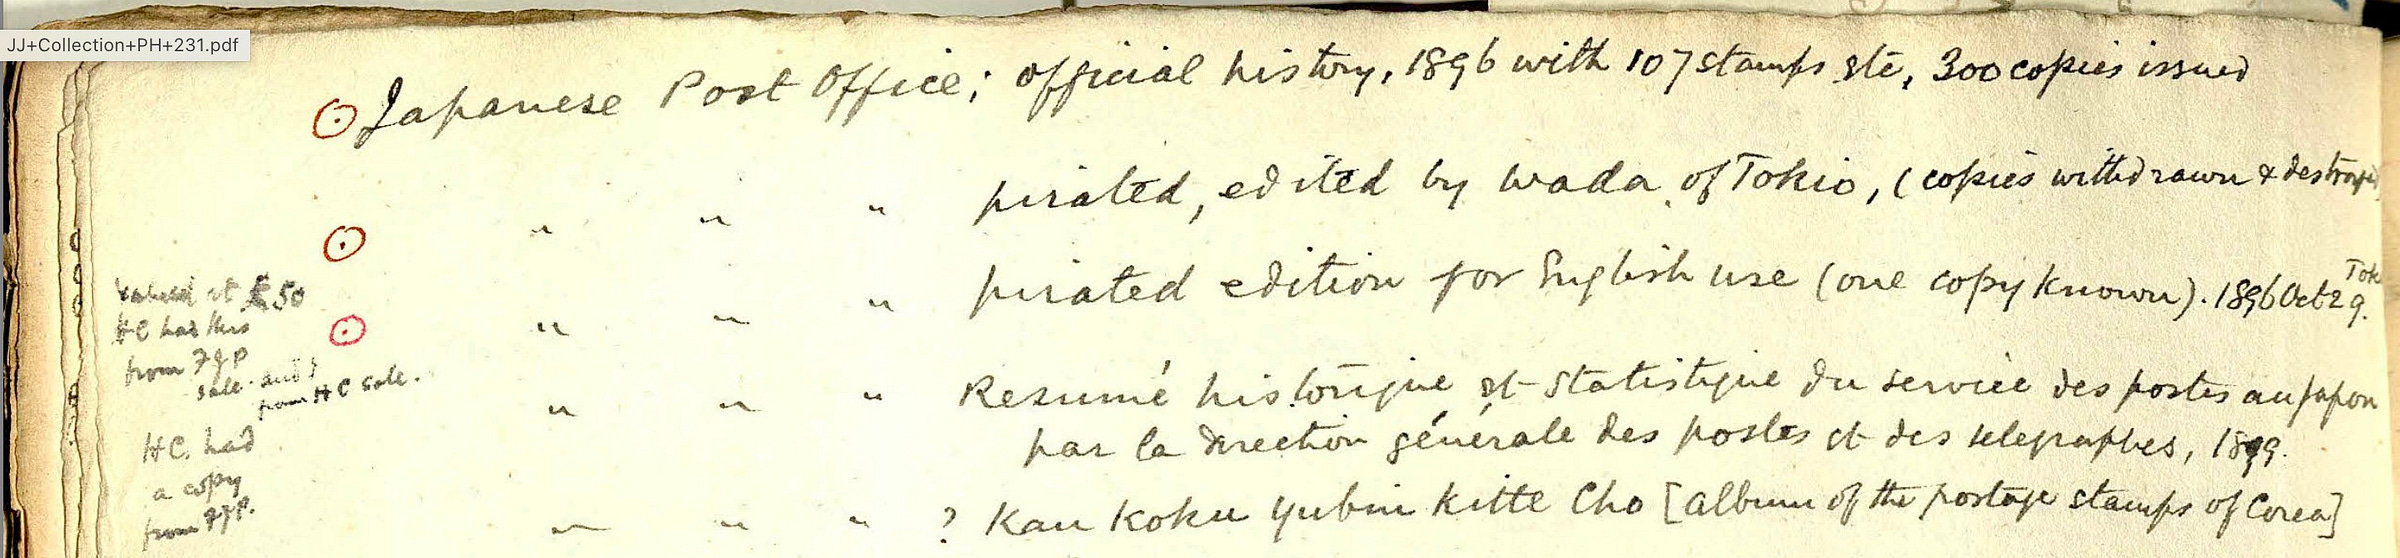 JJ+Collection+PH+231.pdf
Japanese Post Office; official history, 1896 with 107 stamps etc, 300 copies issued
" " " pirated, edited by Wada of Tokio, (copies withdrawn & destroyed)
" " " pirated edition for English use (one copy known). 1896 Oct 29.
valued at £50
HC had this
from
sale and
from HC sale.
" " " Resumé historique et statistique du service des postes au Japon
par la direction générale des postes et des telegraphes, 1899.
HC. had
a copy
from
" " " ? Kan Koku Yubin Kitte Cho [album of the postage stamps of Corea]